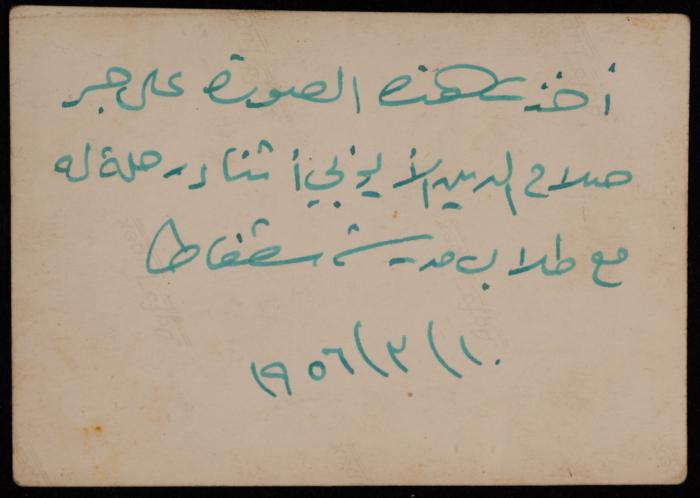 أخذت هذه الصورة على جسر
صلاح الدين الأيوبي أثناء رحلة له
مع طلاب مدرسة
١٩٥٦/٣/١٠